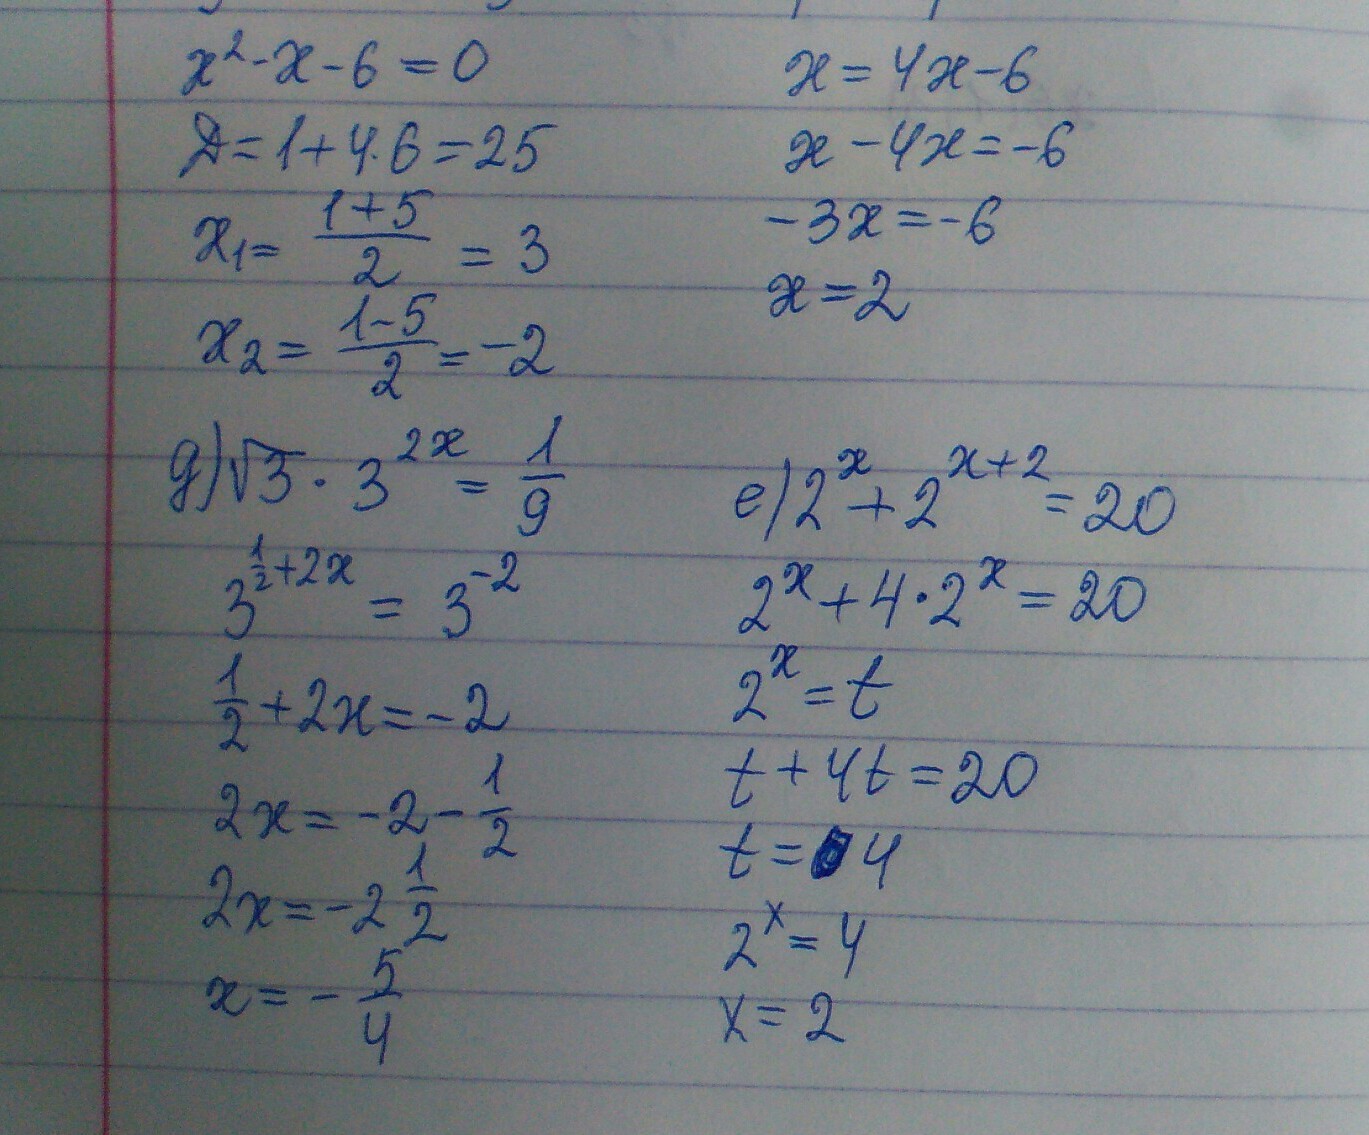 x² - x - 6 = 0
D = 1 + 4·6 = 25
x₁ = (1+5)/2 = 3
x₂ = (1-5)/2 = -2
x = 4x - 6
x - 4x = -6
-3x = -6
x = 2
g) √3 · 3^(2x) = 1/9
3^(1/2+2x) = 3^(-2)
1/2 + 2x = -2
2x = -2 - 1/2
2x = -2 1/2
x = -5/4
e) 2^x + 2^(x+2) = 20
2^x + 4·2^x = 20
2^x = t
t + 4t = 20
t = 4
2^x = 4
x = 2